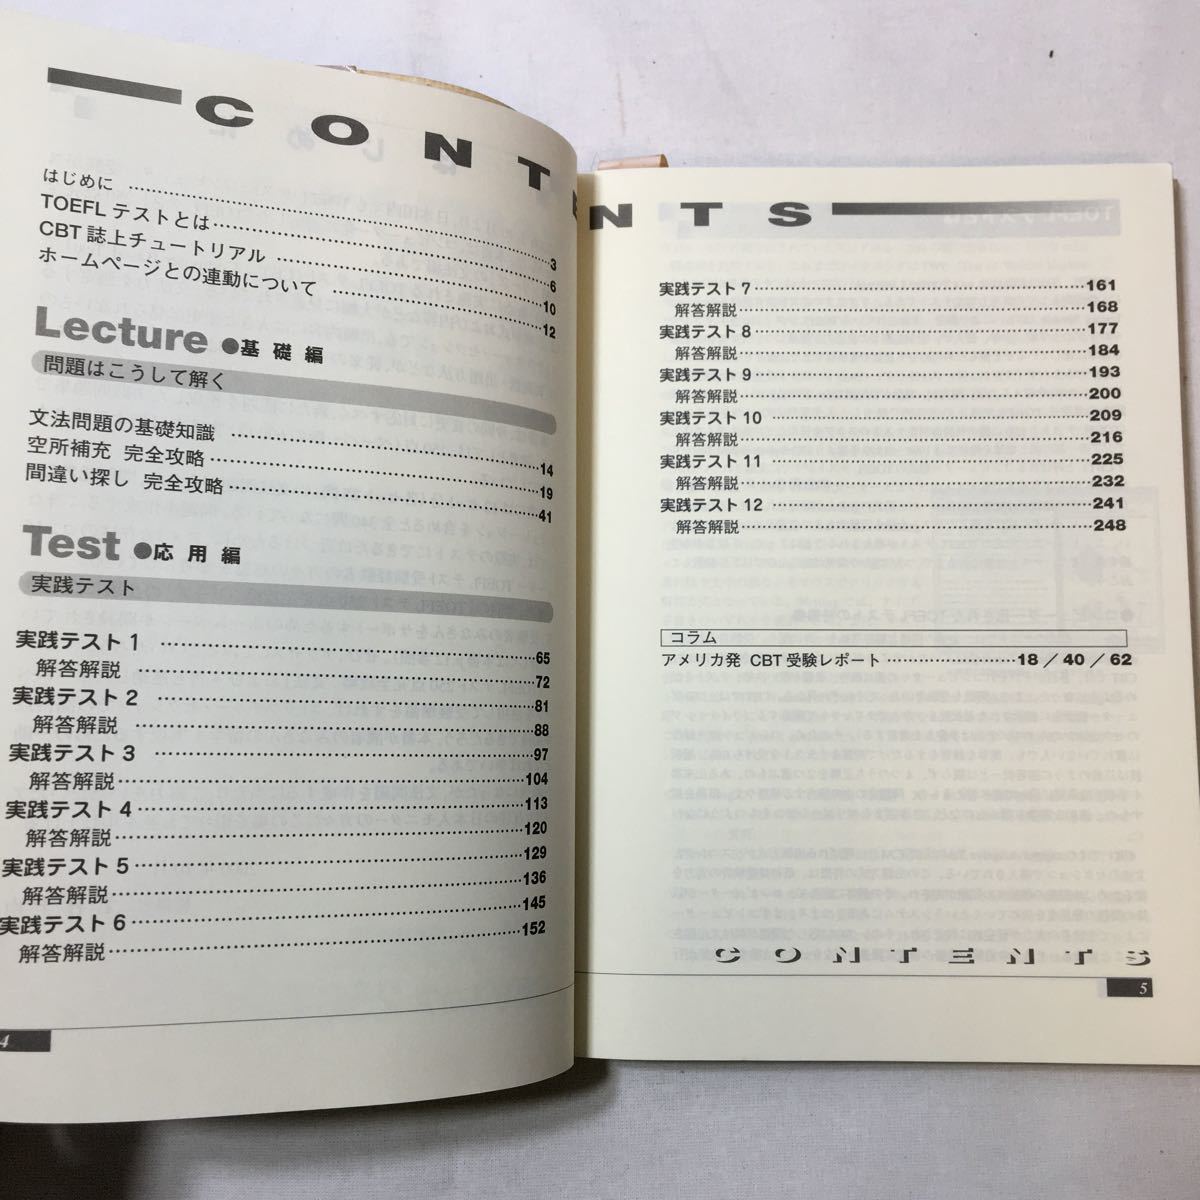 CONTENTS
はじめに ……… 3
TOEFL テストとは ……… 6
CBT 誌上チュートリアル ……… 10
ホームページとの連動について ……… 12
Lecture ●基礎編
問題はこうして解く
文法問題の基礎知識 ……… 14
空所補充 完全攻略 ……… 19
間違い探し 完全攻略 ……… 41
Test ●応用編
実践テスト
実践テスト 1 ……… 65
解答解説 ……… 72
実践テスト 2 ……… 81
解答解説 ……… 88
実践テスト 3 ……… 97
解答解説 ……… 104
実践テスト 4 ……… 113
解答解説 ……… 120
実践テスト 5 ……… 129
解答解説 ……… 136
実践テスト 6 ……… 145
解答解説 ……… 152
4
実践テスト 7 ……… 161
解答解説 ……… 168
実践テスト 8 ……… 177
解答解説 ……… 184
実践テスト 9 ……… 193
解答解説 ……… 200
実践テスト 10 ……… 209
解答解説 ……… 216
実践テスト 11 ……… 225
解答解説 ……… 232
実践テスト 12 ……… 241
解答解説 ……… 248
コラム
アメリカ発 CBT 受験レポート ……… 18／40／62
CONTENTS
5